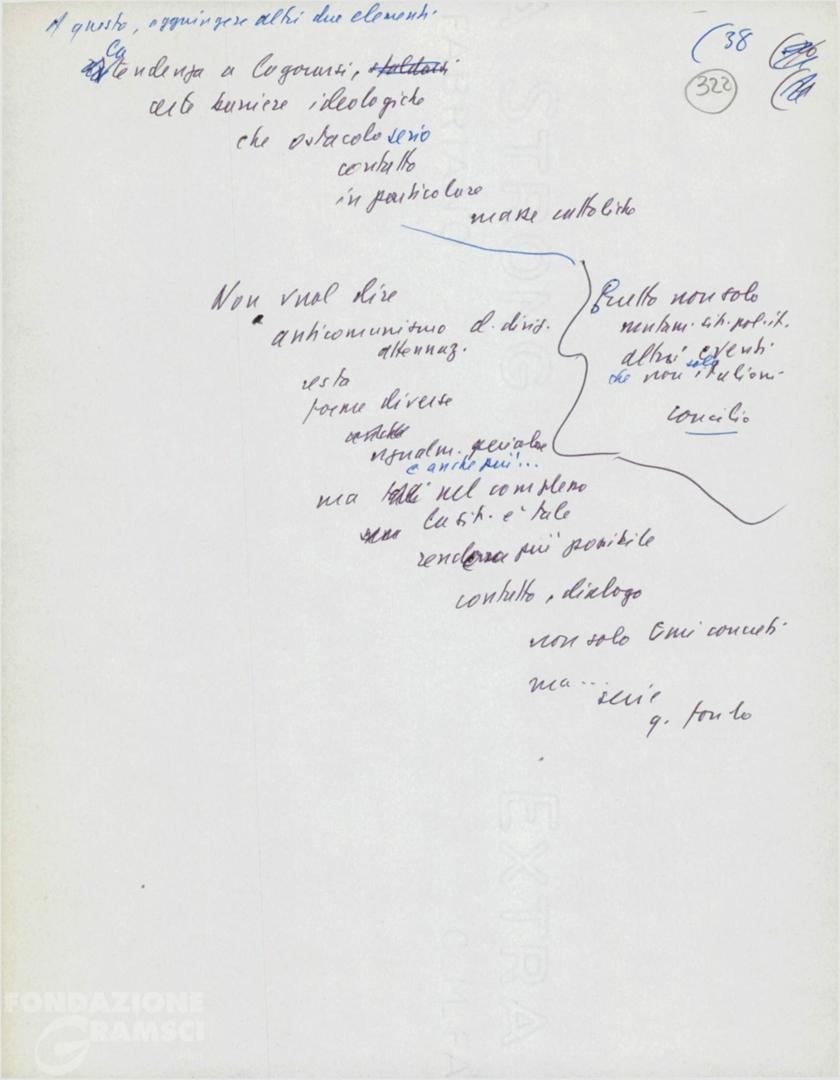 A questo, aggiungere altri due elementi
(38
322
la tendenza a logorarsi,
certe barriere ideologiche
che ostacolo serio
contatto
in particolare
masse cattoliche
Non vuol dire
anticomunismo d. dirig.
attennaz.
resta
forme diverse
ugualm. pericolose
e anche più...
ma nel complesso
la sit. è tale
rendere più possibile
contatto, dialogo
non solo temi concreti
ma ...
serie
q. fondo
Questo non solo
mutam. sit. polit.
altri eventi
che non solo italiani
concilio
STRONG
EXTRA
FONDAZIONE
GRAMSCI